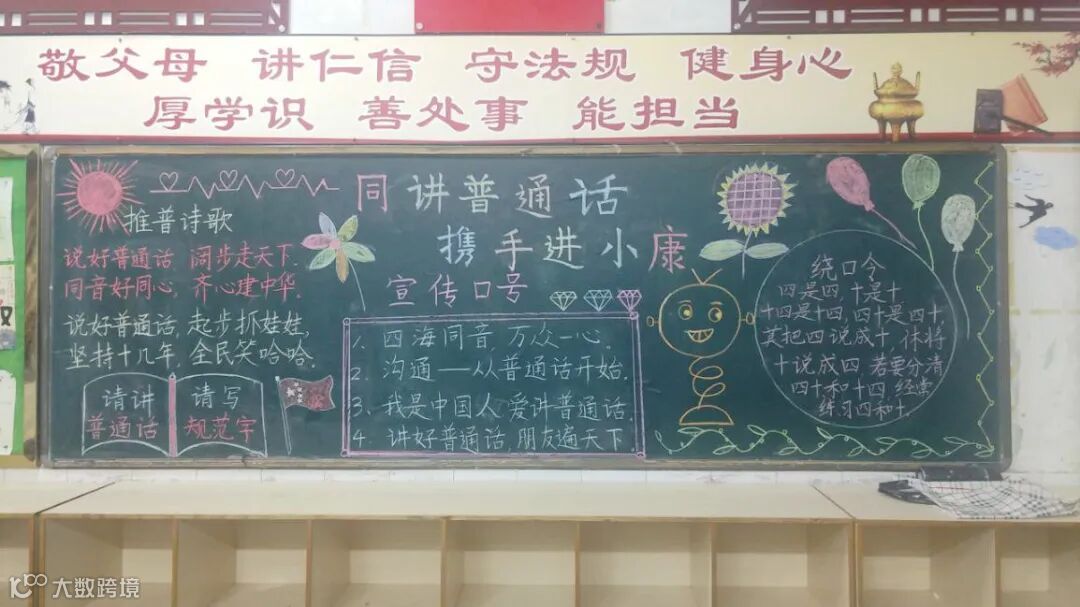 敬父母 讲仁信 守法规 健身心
厚学识 善处事 能担当
同讲普通话
携手进小康
推普诗歌
说好普通话,阔步走天下.
同音好同心,齐心建中华.
说好普通话,起步抓娃娃,
坚持十几年,全民笑哈哈.
请讲
普通话
请写
规范字
宣传口号
1、四海同音,万众一心.
2、沟通——从普通话开始.
3、我是中国人,爱讲普通话.
4、讲好普通话,朋友遍天下
绕口令
四是四,十是十
十四是十四,四十是四十
莫把四说成十,休将
十说成四.若要分清
四十和十四,经常
练习四和十.
大数跨境